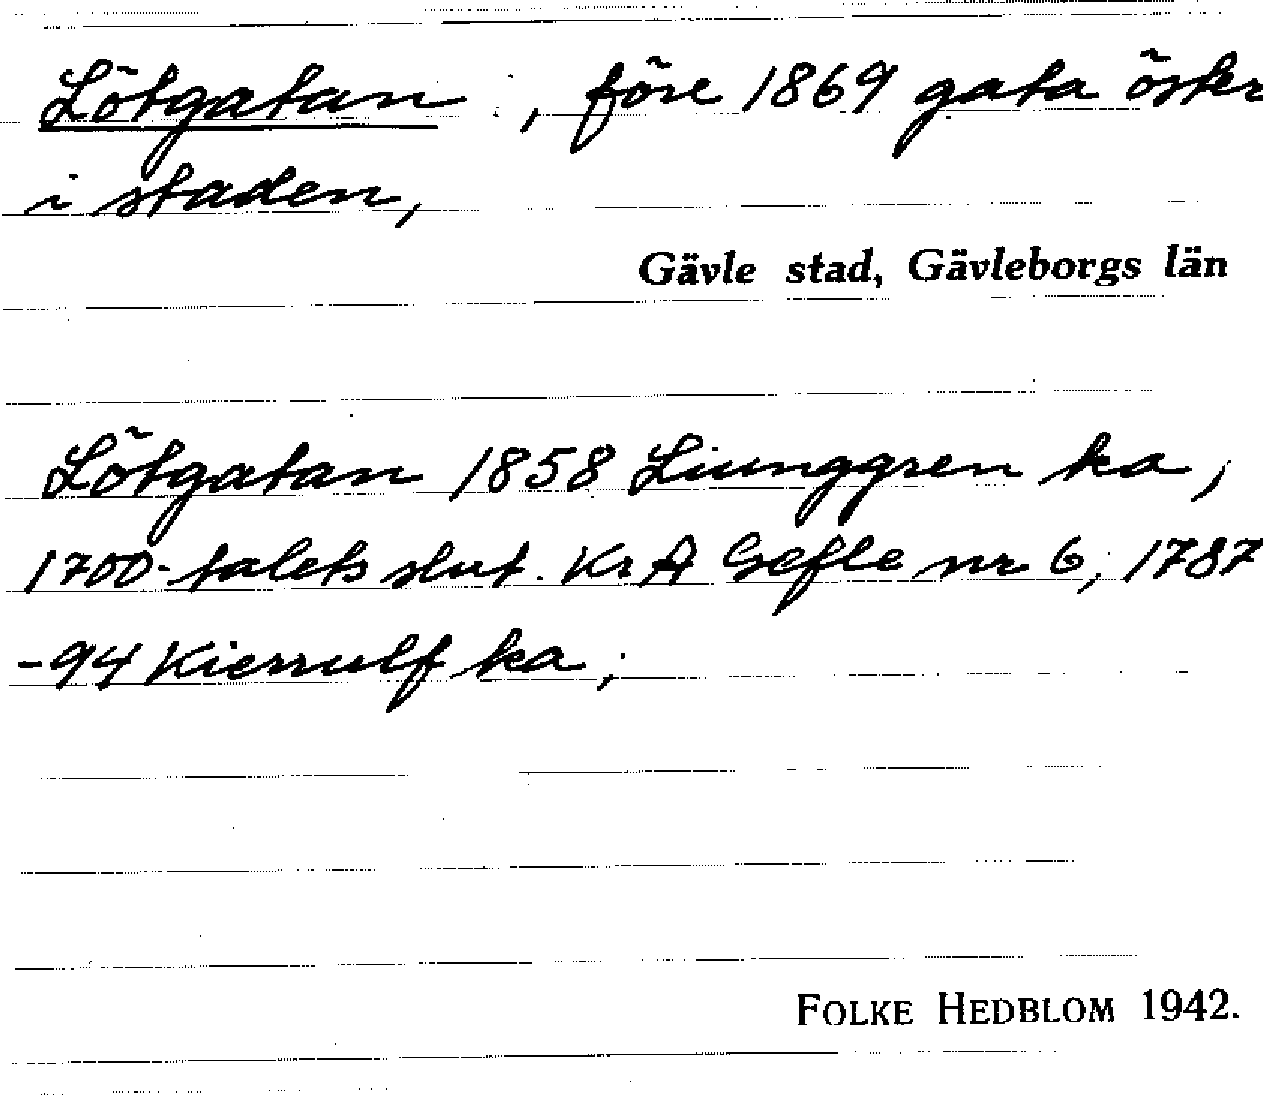 Lötgatan , före 1869 gata öster
i staden,
Gävle stad, Gävleborgs län
Lötgatan 1858 Ljunggren ka,
1700-talets slut. KrA Gefle nr 6; 1787
-94 Kierrulf ka;
FOLKE HEDBLOM 1942.